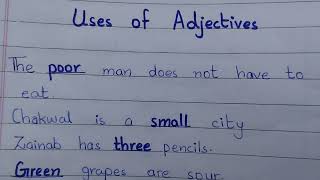 Uses of Adjectives
The poor man does not have to
eat.
Chakwal is a small city
Zainab has three pencils.
Green grapes are sour